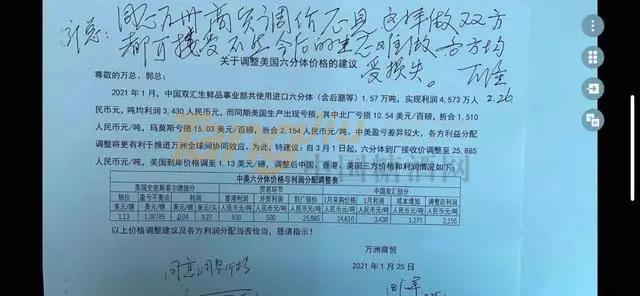 同意万洲商贸调价意见 这样做双方
都可接受 不然今后的生意难做 方方均
受损失。
2.26
关于调整美国六分体价格的建议
尊敬的万总、郭总：
2021年1月，中国双汇生鲜品事业部共使用进口六分体（含后腿等）1.57万吨，实现利润4,573万人
民币元，吨均利润3,430人民币元，而同期美国生产出现亏损，其中北厂亏损10.54美元/百磅，折合1,510
人民币元/吨，玛莫斯亏损15.03美元/百磅，折合2,154人民币元/吨，中美盈亏差异较大，各方利益分配
调整将更有利于推进万洲全球间协同效应。为此，特建议：自3月1日起，六分体到厂接收价调整至25,885
人民币元/吨，美国到岸价格调至1.13美元/磅，调整后中国、香港、美国三方价格和利润情况如下：
中美六分体价格与利润分配调整表
美国史密斯菲尔德部分 贸易环节 中国双汇部分
销价 盈亏平衡点 利润 香港利润 外贸利润 到厂销价 1月采购价格 1月利润 成本增加 调整后利润
美元/磅 美元/磅 美元/磅 美元/头 人民币元/吨 人民币元/吨 人民币元/吨 人民币元/吨 人民币元/吨 人民币元/吨 人民币元/吨
1.13 1.08785 0.04 9.27 500 500 25,885 24,610 3,430 1,275 2,155
以上价格调整建议及各方利润分配当否恰当，恳请指示！
万洲商贸
2021年1月25日